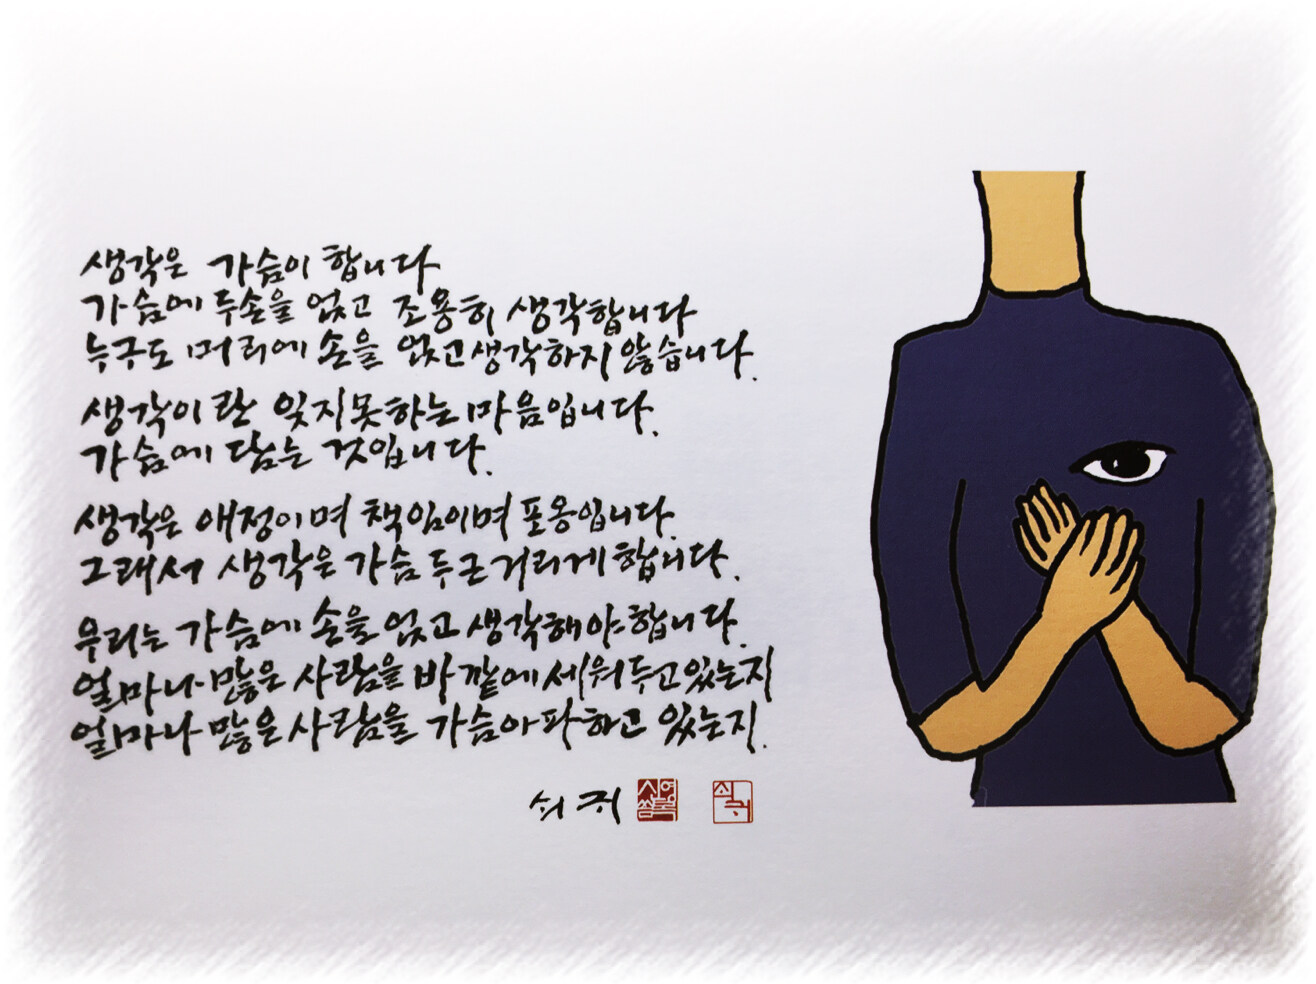 생각은 가슴이 합니다
가슴에 두손을 얹고 조용히 생각합니다
누구도 머리에 손을 얹고 생각하지 않습니다.
생각이란 잊지못하는 마음입니다.
가슴에 담는 것입니다.
생각은 애정이며 책임이며 포옹입니다.
그래서 생각은 가슴 두근거리게 합니다.
우리는 가슴에 손을 얹고 생각해야합니다.
얼마나 많은 사람을 바깥에 세워두고있는지
얼마나 많은 사람을 가슴아파하고 있는지.
쇠귀
신영복
쇠귀